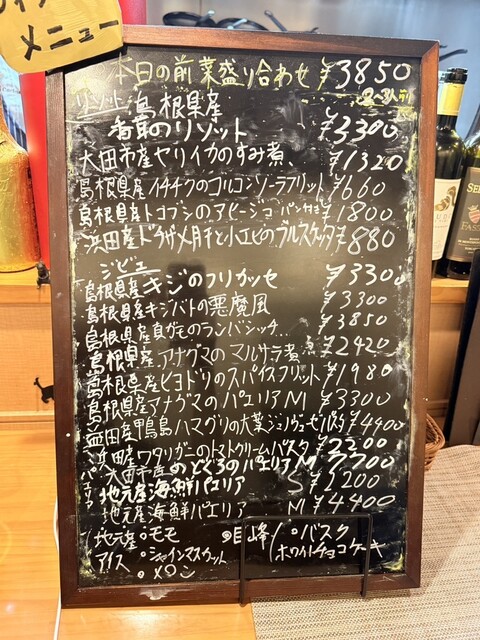 メニュー
本日の前菜盛り合わせ ¥3850
2~3人前
リゾット 島根県産
香茸のリゾット ¥3300
大田市産ヤリイカのすみ煮、 ¥1320
島根県産イチヂクのゴルゴンゾーラフリット ¥660
島根県産トコブシのアヒージョ・パン付き ¥1800
浜田産ドチザメ月干と小エビのブルスケッタ ¥880
ジビエ
島根県産キジのフリカッセ ¥3300
島根県産キジバトの悪魔風 ¥3300
島根県産真ガモのランバシッチ、 ¥3850
島根県産アナグマのマルサラ煮 ¥2420
島根県産ヒヨドリのスパイスフリット ¥1980
島根県産アナグマのパエリア M ¥3300
益田産鴨島ハマグリの大葉ジェノヴェーゼパスタ ¥4400
浜田産ワタリガニのトマトクリームパスタ ¥2200
パエリア 大田市産のどぐろのパエリア M ¥7700
地元産海鮮パエリア S ¥1200
地元産海鮮パエリア M ¥4400
地元産 ・モモ
アイス ・シャインマスカット
・メロン
・バスク
ホワイトチョコケーキ